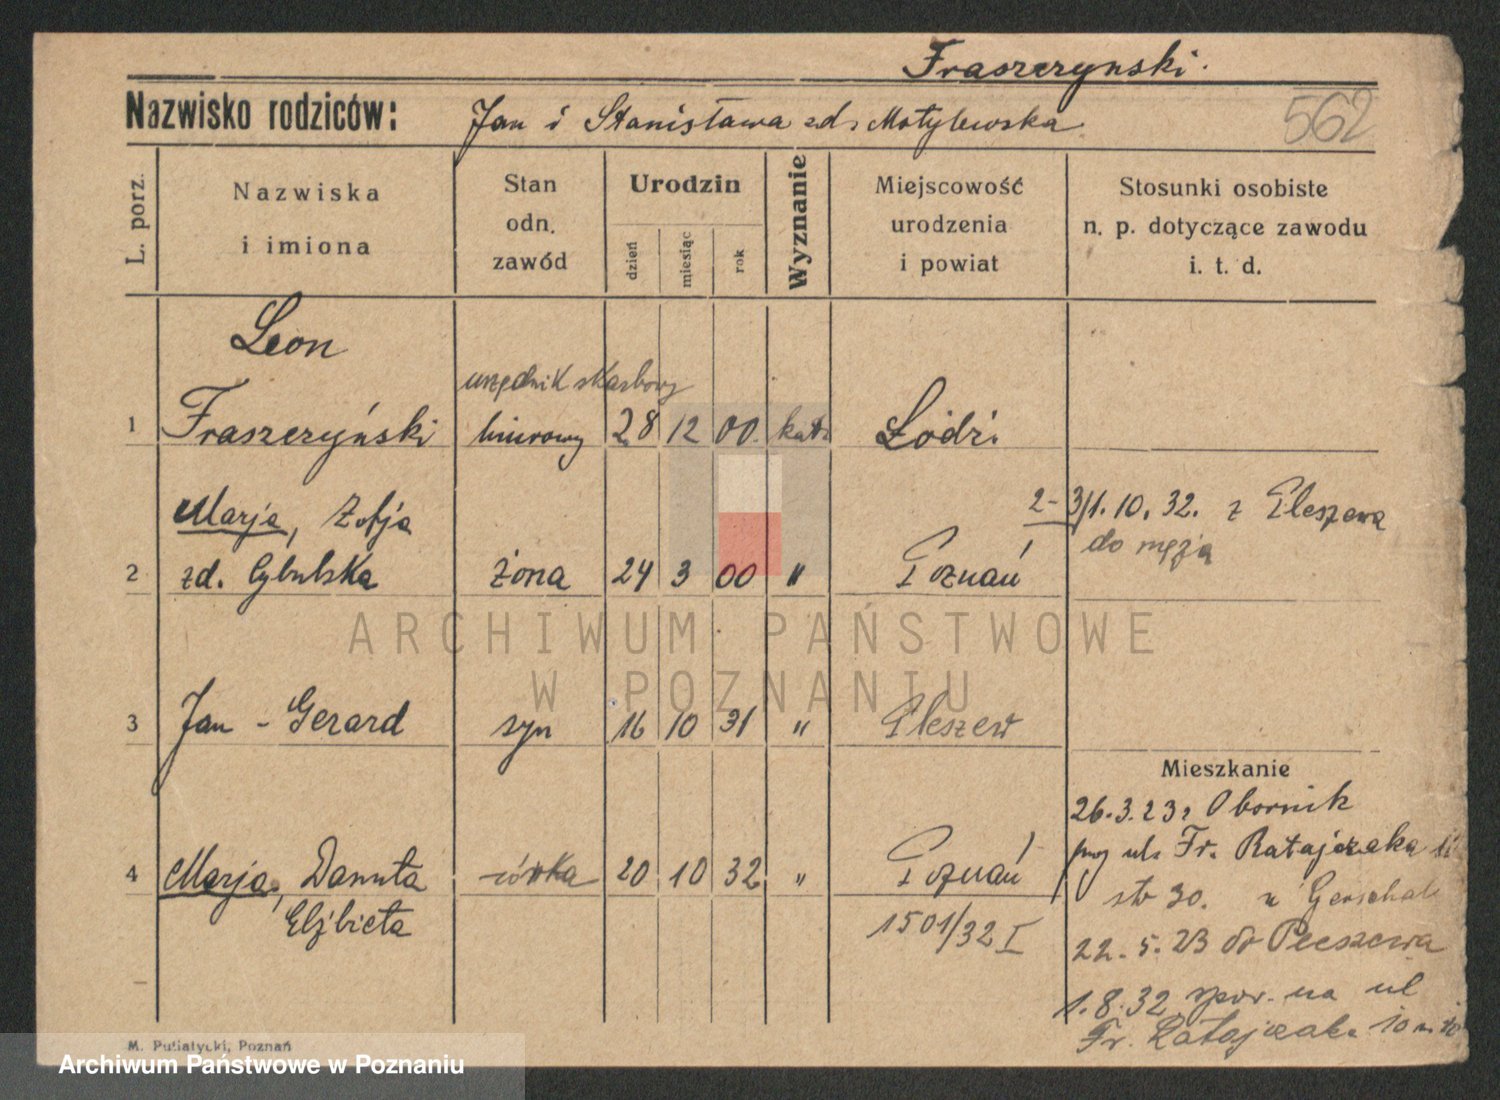 Fraszczynski.
Nazwisko rodziców: Jan i Stanisława zd. Motylewska
562
L. porz.
Nazwiska
i imiona
Stan
odn.
zawód
Urodzin
dzień
miesiąc
rok
Wyznanie
Miejscowość
urodzenia
i powiat
Stosunki osobiste
n. p. dotyczące zawodu
i. t. d.
Leon
urzędnik skarbowy
1 Fraszczyński biurowy 28 12 00 kat. Łódź.
Marja, Zofja
2 zd. Cybulska żona 24 3 00 " Poznań
2-3/1.10.32. z Pleszewa
do męża
3 Jan - Gerard syn 16 10 31 " Pleszew
Mieszkanie
4 Marja, Danuta córka 20 10 32 " Poznań
Elżbieta
1501/32 I
26.3.23 z Obornik
ul. Fr. Ratajczaka
str 30.
22.5.23 do Pleszewa
1.8.32 spow. na ul
Fr. Ratajczaka 10
M. Putiatycki, Poznań
ARCHIWUM PAŃSTWOWE
W POZNANIU
Archiwum Państwowe w Poznaniu